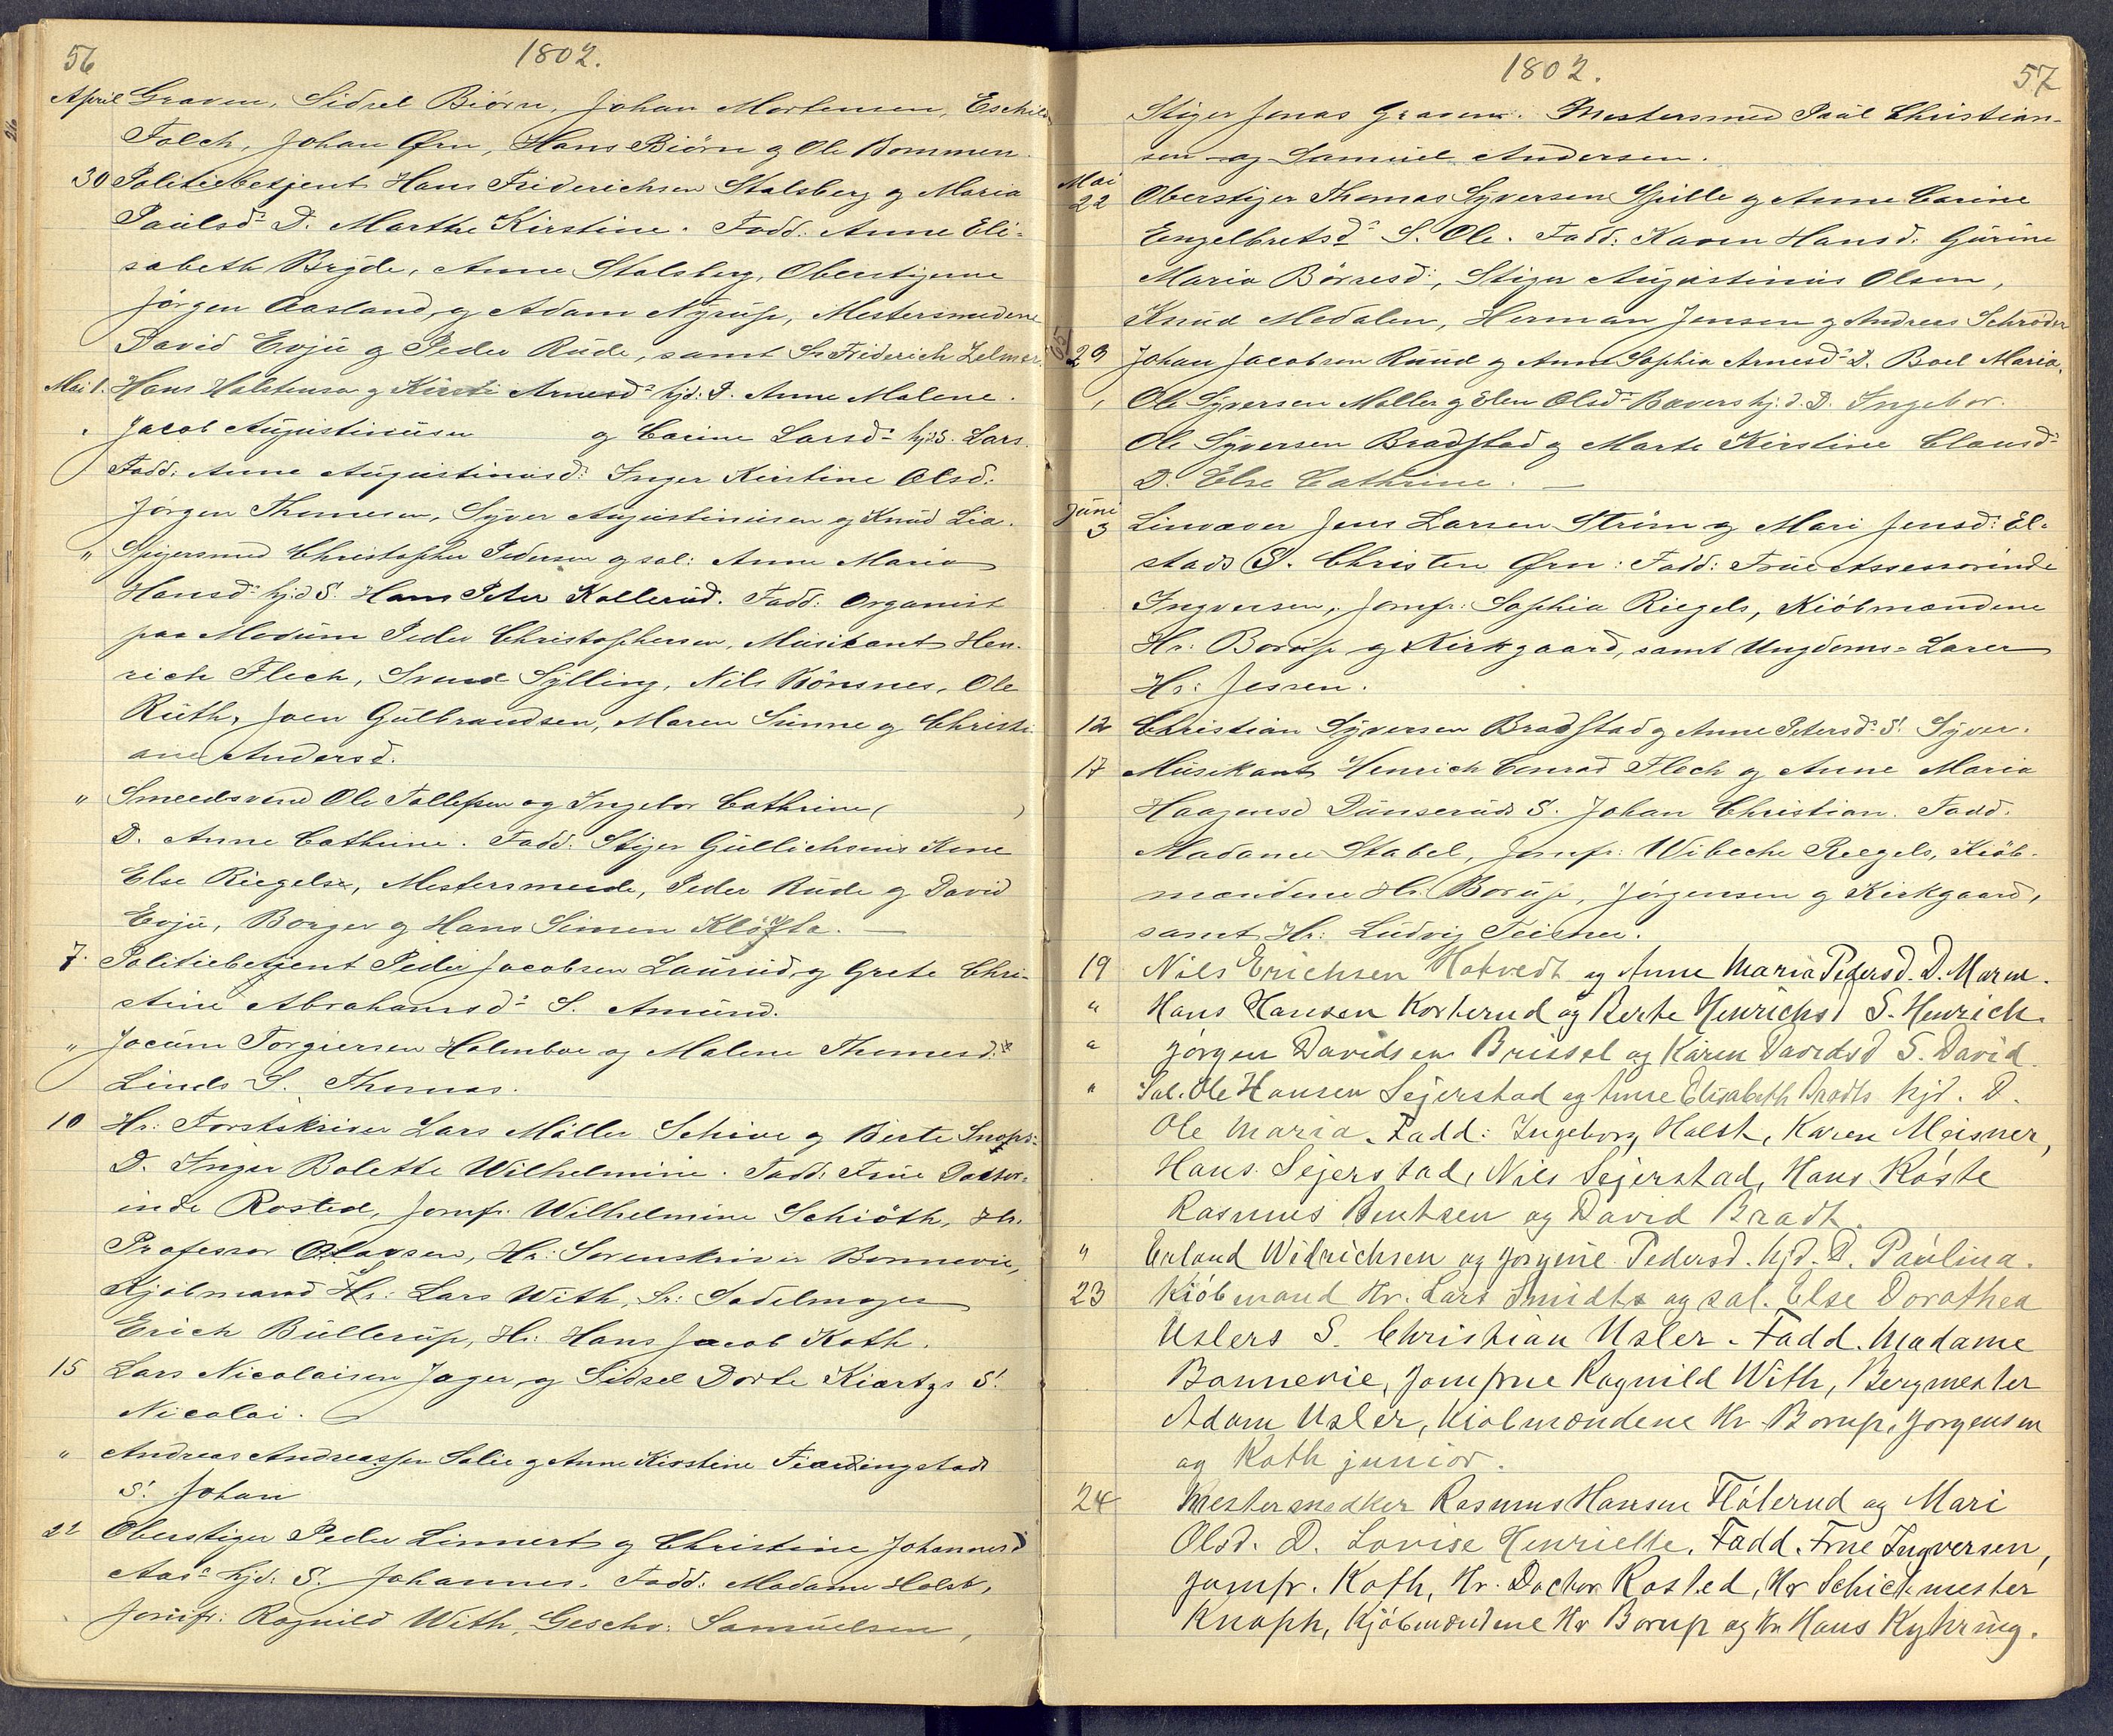 56
1802.
April Graven, Sidsel Biörn, Johan Mortensen, Eschild
Falch, Johan Ørn, Hans Biörn og Ole Bommen.
30 Politiebetjent Hans Friderichsen Stalsberg og Maria
Paulsdr D. Marthe Kirstine. Fadd. Anne Eli-
sabeth Bryde, Anne Stalsberg, Oberstigerne
Jörgen Aasland og Adam Nyrup, Mestersmedene
David Evju og Peder Rude, samt Sr Friderich Zelmer.
Mai 1. Hans Halstensen og Kirsti Arnesdr hjd: D. Anne Malene.
" Jacob Augustinusen og Carine Larsdr hjd S. Lars.
Fadd: Anne Augustinusd: Inger Kirstine Olsd.
Jörgen Thomesen, Syver Augustinusen og Knud Lia.
" Spigersmed Christopher Pedersen og sal: Anne Maria
Hansdr hjd S. Hans Peter Kollerud. Fadd: Organist
paa Modum Peder Christophersen, Musikant Hen-
rich Flech, Svend Sylling, Nils Hönsnes, Ole
Ruth, Joen Gulbrandsen, Maren Sunne og Christi-
ane Andersd.
" Smedsvend Ole Tollefsen og Ingebor Cathrine ( )
D. Anne Cathrine. Fadd. Stiger Gullichsens Kone
Else Riegels, Mestersmede, Peder Rude og David
Evju, Borger og Hans Simen Klöfte.
7. Politiebetjent Peder Jacobsen Laurud og Grete Chri-
stine Abrahamsdr S. Amund.
" Jocum Torgiersen Holmboe og Malene Thomesd:
Linds S. Thomas.
10 Hr: Forstskriver Lars Möller Schive og Birte Knoph:
D. Inger Bolette Wilhelmine. Fadd: Frue Doctor-
inde Rosted, Jomfr. Wilhelmine Schiöth, Hr.
Professor Olavsen, Hr: Sorenskriver Bonnevie,
Kjöbmand Hr: Lars With, Sr: Sadelmager
Erich Bullerup, Hr: Hans Jacob Koth.
15 Lars Nicolaisen Jager og Sidsel Dorte Kiærtzs S.
Nicolai.
" Andreas Andreassen Solie og Anne Kirstine Fiærdingstads
S. Johan
22 Oberstiger Peder Linnert og Christine Johannesd
Aasr hjd: S. Johannes. Fadd: Madame Holst,
Jomfr: Ragnild With, Geschv: Samuelsen,
1802.
57
Stiger Jonas Graven. Mestersmed Paul Christian-
sen og Samuel Andersen.
Mai
22 Oberstiger Thomas Syversen Spille og Anne Carine
Engelbretsdr S. Ole. Fadd: Karen Hansd. Gurine
Maria Börresd:, Stiger Augustinus Olsen,
Knud Medalen, Herman Jensen og Andreas Schröder
29 Johan Jacobsen Ruud og Anne Sophia Arnesdr D. Boel Maria.
" Ole Syversen Moller og Elen Olsdr Bævers hjd. D. Ingebor.
Ole Syversen Bradstad og Marte Kirstine Clausdr
D. Else Cathrine. —
Juni
3 Linvæver Jens Larsen Ström og Mari Jensd: El-
stads S. Christen Ørn: Fadd: Frue Assessorinde
Ingversen, Jomfr: Sophia Riegels, Kiöbmændene
Hr: Borup og Kirkgaard, samt Ungdoms-Lærer
Hr: Jessen.
12 Christian Syversen Bradstad og Anne Petersdr S. Syver.
17 Musikant Henrich Conrad Flech og Anne Maria
Haagensd Dunseruds S. Johan Christian. Fadd.
Madame Stabel, Jomfr: Wibeche Riegels, Kiöb-
mændene Hr. Borup, Jörgensen og Kirkgaard,
samt Hr: Ludvig Teisner.
19 Nils Erichsen Hotvedt og Anne Maria Pedersd. D. Maren.
" Hans Hansen Korterud og Berte Henrichsd S. Henrich.
" Jörgen Davidsen Brissel og Karen Davidsd S. David.
" Sal. Ole Hansen Sejerstad og Anne Elisabeth Bradts hjd. D.
Ole Maria. Fadd: Ingeborg Holst, Karen Meisner,
Hans Sejerstad, Nils Sejerstad, Hans Röste
Rasmus Bentsen og David Bradt.
" Erland Widrichsen og Jorgine Pedersd. hjd. D. Paulina.
23 Kiöbmand Hr. Lars Smidts og sal. Else Dorothea
Uslers S. Christian Usler. Fadd. Madame
Bonnevie, Jomfrue Ragnild With, Bergmester
Adam Usler, Kiöbmændene Hr Borup, Jorgensen
og Koth junior.
24 Mestersnedker Rasmus Hansen Flölerud og Mari
Olsd. D. Lovise Henriette. Fadd. Frue Ingversen,
Jomfr. Koth, Hr. Doctor Rosted, Hr Schichtmester
Knoph, Kjöbmændene Hr Borup og Hr Hans Kyhring.